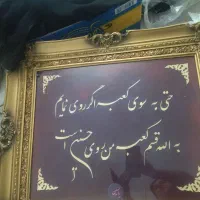 حتی به سوی کعبه اگر روی نمایم
به الله قسم کعبه من روی حسین است